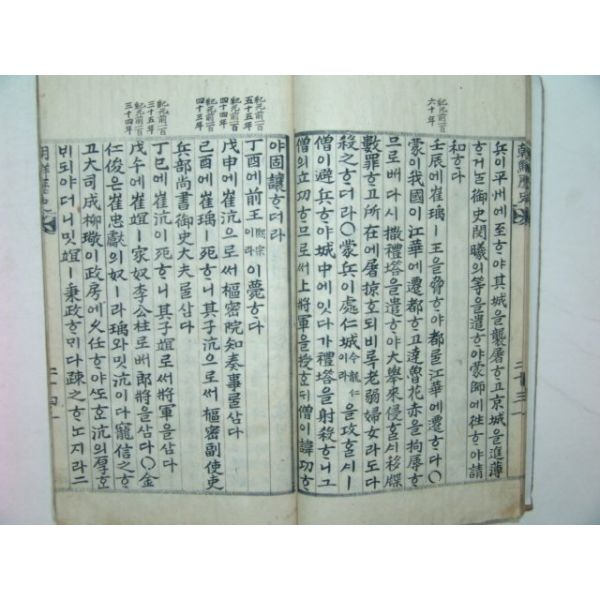 紀元前一百
六十年
朝鮮歷史
兵이平州에至ᄒᆞ야其城을襲屠ᄒᆞ고京城을進薄
ᄒᆞ거ᄂᆞᆯ御史閔曦의等을遣ᄒᆞ야蒙師에往ᄒᆞ야請
和ᄒᆞ다
壬辰에崔瑀ㅣ王을脅ᄒᆞ야都를江華에遷ᄒᆞ다○
蒙이我國이江華에遷都ᄒᆞ고達魯花赤을拘辱ᄒᆞ
므로ᄡᅥ다시撒禮塔을遣ᄒᆞ야大擧來侵ᄒᆞᆯᄉᆡ移牒
數罪ᄒᆞ고所在에屠掠호ᄃᆡ비록老弱婦女라도다
殺ᄒᆞ더라○蒙兵이處仁城今龍仁이라을攻ᄒᆞᆯᄉᆡ一
僧이避兵ᄒᆞ야城中에잇다가禮塔을射殺ᄒᆞ니그
僧의立功ᄒᆞ므로上將軍을授호ᄃᆡ僧이諱功ᄒᆞ
紀元前一百
五十五年
紀元前一百
四十四年
紀元前一百
四十三年
紀元前一百
三十五年
紀元前一百
三十四年
야固讓ᄒᆞ더라
丁酉에前王熙宗이라이薨ᄒᆞ다
戊申에崔沆으로ᄡᅥ樞密院知奏事를삼다
己酉에崔瑀ㅣ死ᄒᆞ니其子沆으로ᄡᅥ樞密副使吏
兵部尙書御史大夫를삼다
丁巳에崔沆ㅣ死ᄒᆞ니其子竩로ᄡᅥ將軍을삼다
戊午에崔竩ㅣ家奴李公柱로ᄡᅥ郞將을삼다○金
仁俊은崔忠獻의奴ㅣ라瑀와밋沆이다寵信ᄒᆞ
고大司成柳璥이政房에久任ᄒᆞ야ᄯᅩᄒᆞᆫ沆의厚ᄒᆞᆫ
비되야더니밋竩ㅣ秉政ᄒᆞᄆᆡ다疎之ᄒᆞᄂᆞᆫ지라二